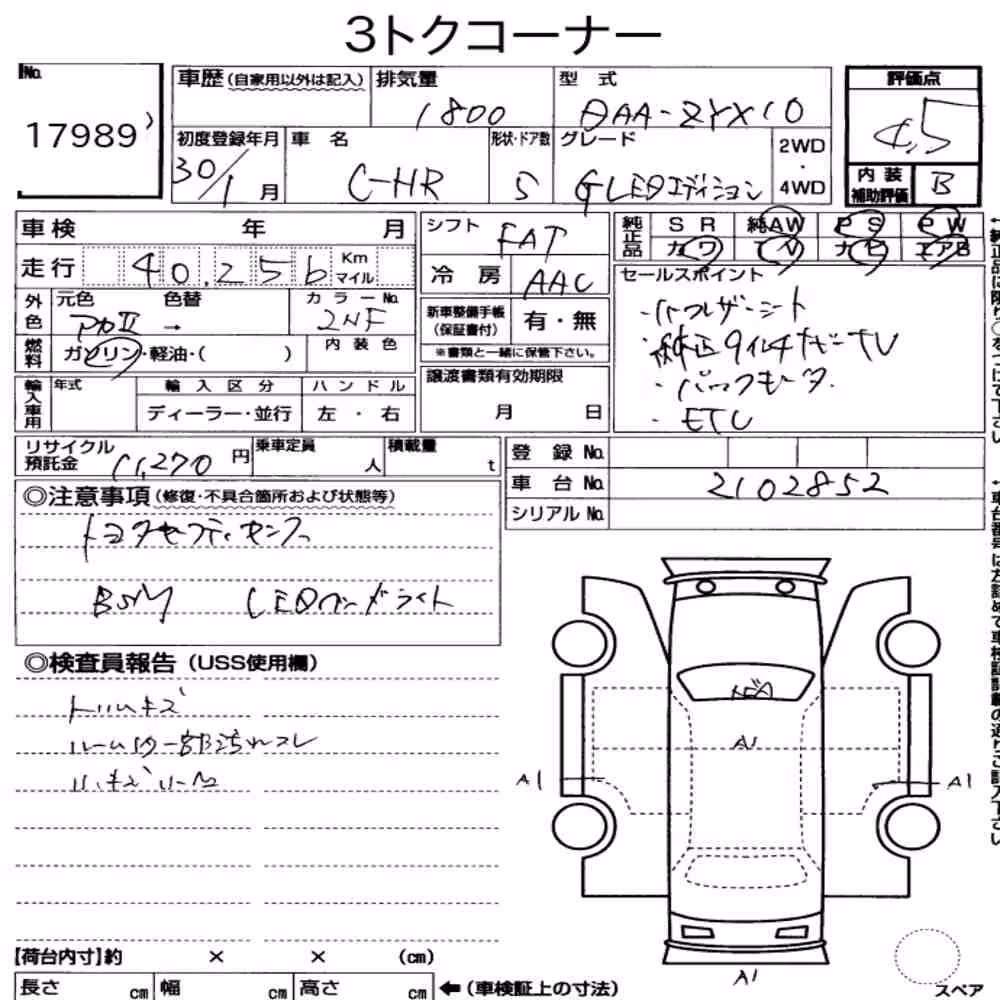 3トクコーナー
No.
17989
車歴(自家用以外は記入)
排気量
1800
型 式
DAA-ZYX10
評価点
4.5
初度登録年月
30/1月
車 名
C-HR
形状・ドア数
5
グレード
G LEDエディション
2WD
・
4WD
内 装
補助評価
B
車検 年 月
走行
40,256
Km
マイル
シフト
FAT
冷 房
AAC
純正品
SR 純AW PS PW
カワ TV ナビ エアB
外色
元色 色替 カラーNo.
アカII → 2NF
燃料
ガソリン・軽油・( )
内 装 色
新車整備手帳
(保証書付)
有・無
※書類と一緒に保管下さい。
セールスポイント
・ハーフレザーシート
・純正9インチナビTV
・バックモニタ
・ETC
輸入車用
年式
輸 入 区 分
ハ ン ド ル
ディーラー・並行
左 ・ 右
譲渡書類有効期限
月 日
リサイクル
預託金
11,270円
乗車定員
人
積載量
t
登 録 No.
車 台 No. 2102852
シリアル No.
◎注意事項(修復・不具合箇所および状態等)
トヨタセーフティセンス
BSM LEDヘッドライト
◎検査員報告(USS使用欄)
トリムキズ
ルーム内一部汚れコレ
A1
A1
A1
A1
【荷台内寸】約 × × (cm)
長さ cm 幅 cm 高さ cm
←(車検証上の寸法)
スペア